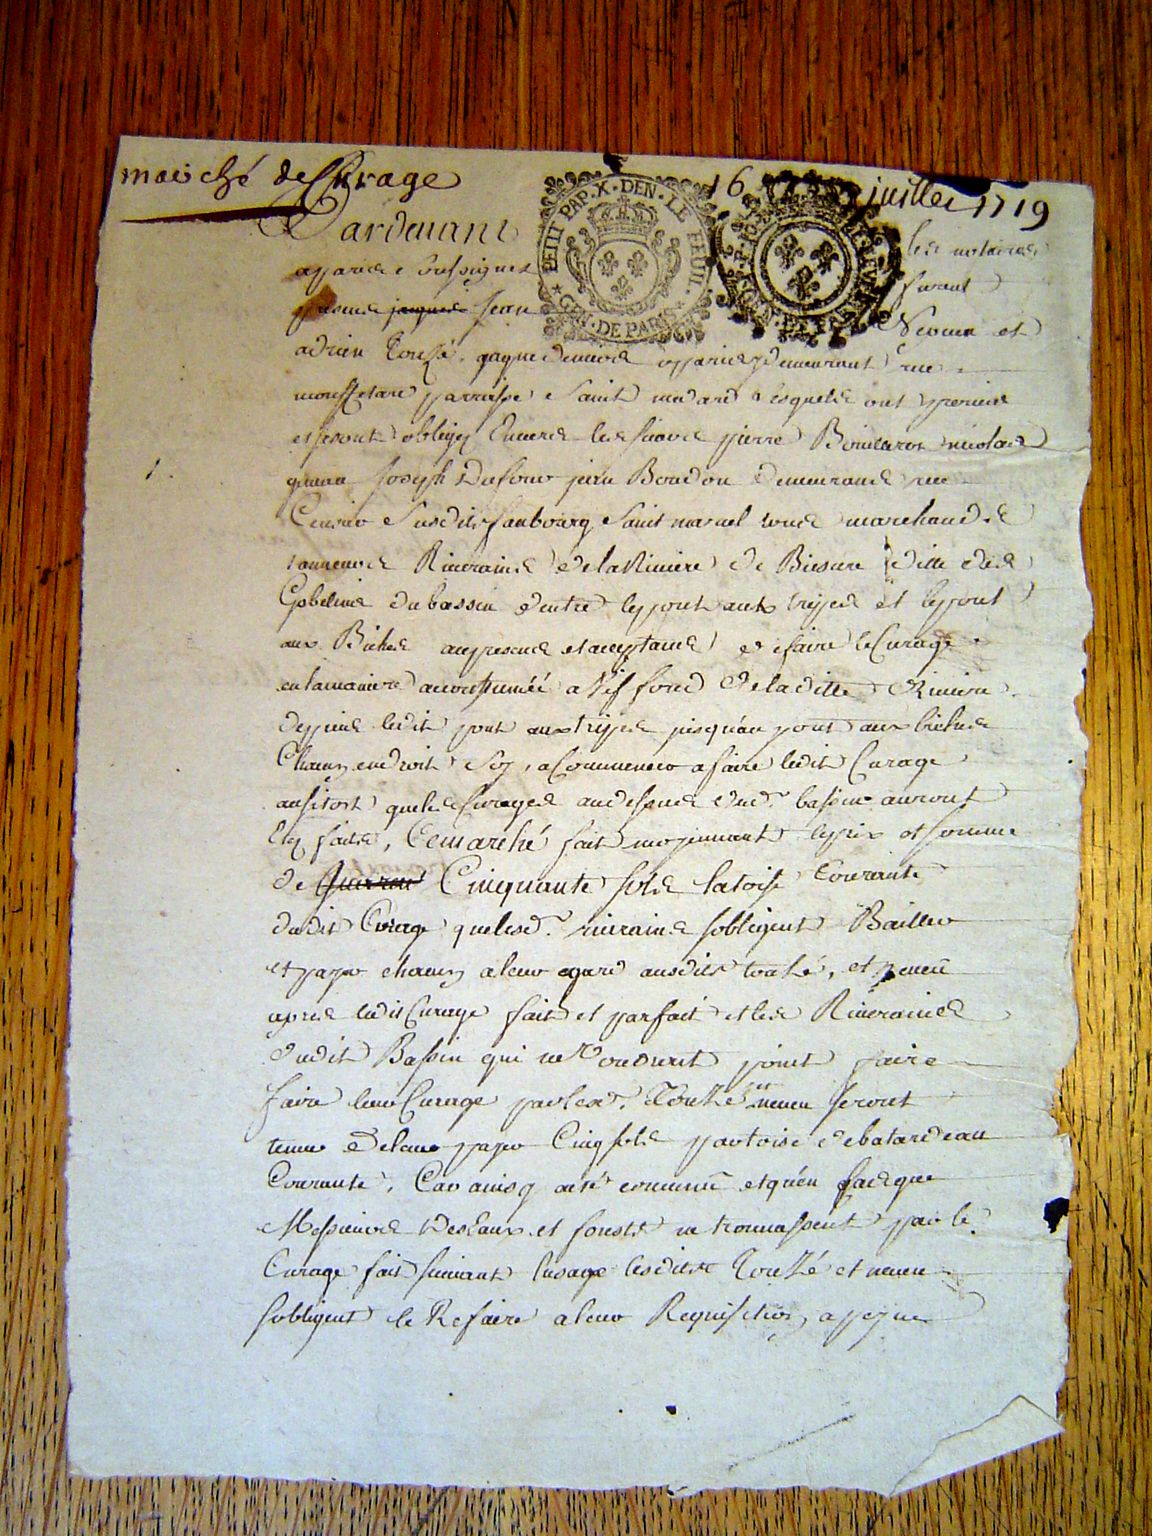 marché de Curage
16 juillet 1719
PETIT PAP. X. DEN. LE FEUIL.
GEN. DE PARIS
Pardevant les notaires
a paris soussignez furent
presens jacques Jean Neveu et
adrien Touzé gagne deniers a paris y demeurant rue
mouffetard parroisse Saint medard lesquels ont promis
et se sont obligez Envers les sieurs pierre Bouillerot nicolas
Joseph Dufour jean Bourdon demeurans rue
Censier susdit faubourg Saint marcel tous marchands
tanneurs Riverains de la Riviere de Biesvre ditte des
Gobelins du bassin d'entre le pont aux tripes et le pont
aux Biches a ce presens et acceptans de faire le Curage
en la maniere accoutumée a vif fond de la ditte Riviere
depuis ledit pont aux tripes jusqu'au pont aux biches
Chacun endroit Soy, a Commencer a faire ledit Curage
ausitost que les Curages au dessus dud. bassin auront
Esté faits, Ce marché fait moyennant le prix et somme
de Cinquante sols la toise Courante
dudit Curage que lesd. riverains s'obligent Bailler
et payer chacun a leur egard ausdits touzé, et neveu
apres ledit Curage fait et parfait et les Riverains
dudit Bassin qui ne voudront point faire
faire leur Curage par lesd. Touzé et neveu seront
tenus de leur payer Cinq sols par toise de batardeau
Courante, Car ainsy a été convenu et qu'en cas que
Messieurs des Eaux et forests ne trouvassent pas le
Curage fait suivant l'usage lesdits Touzé et neveu
s'obligent le Refaire a leur Requisition a peyne